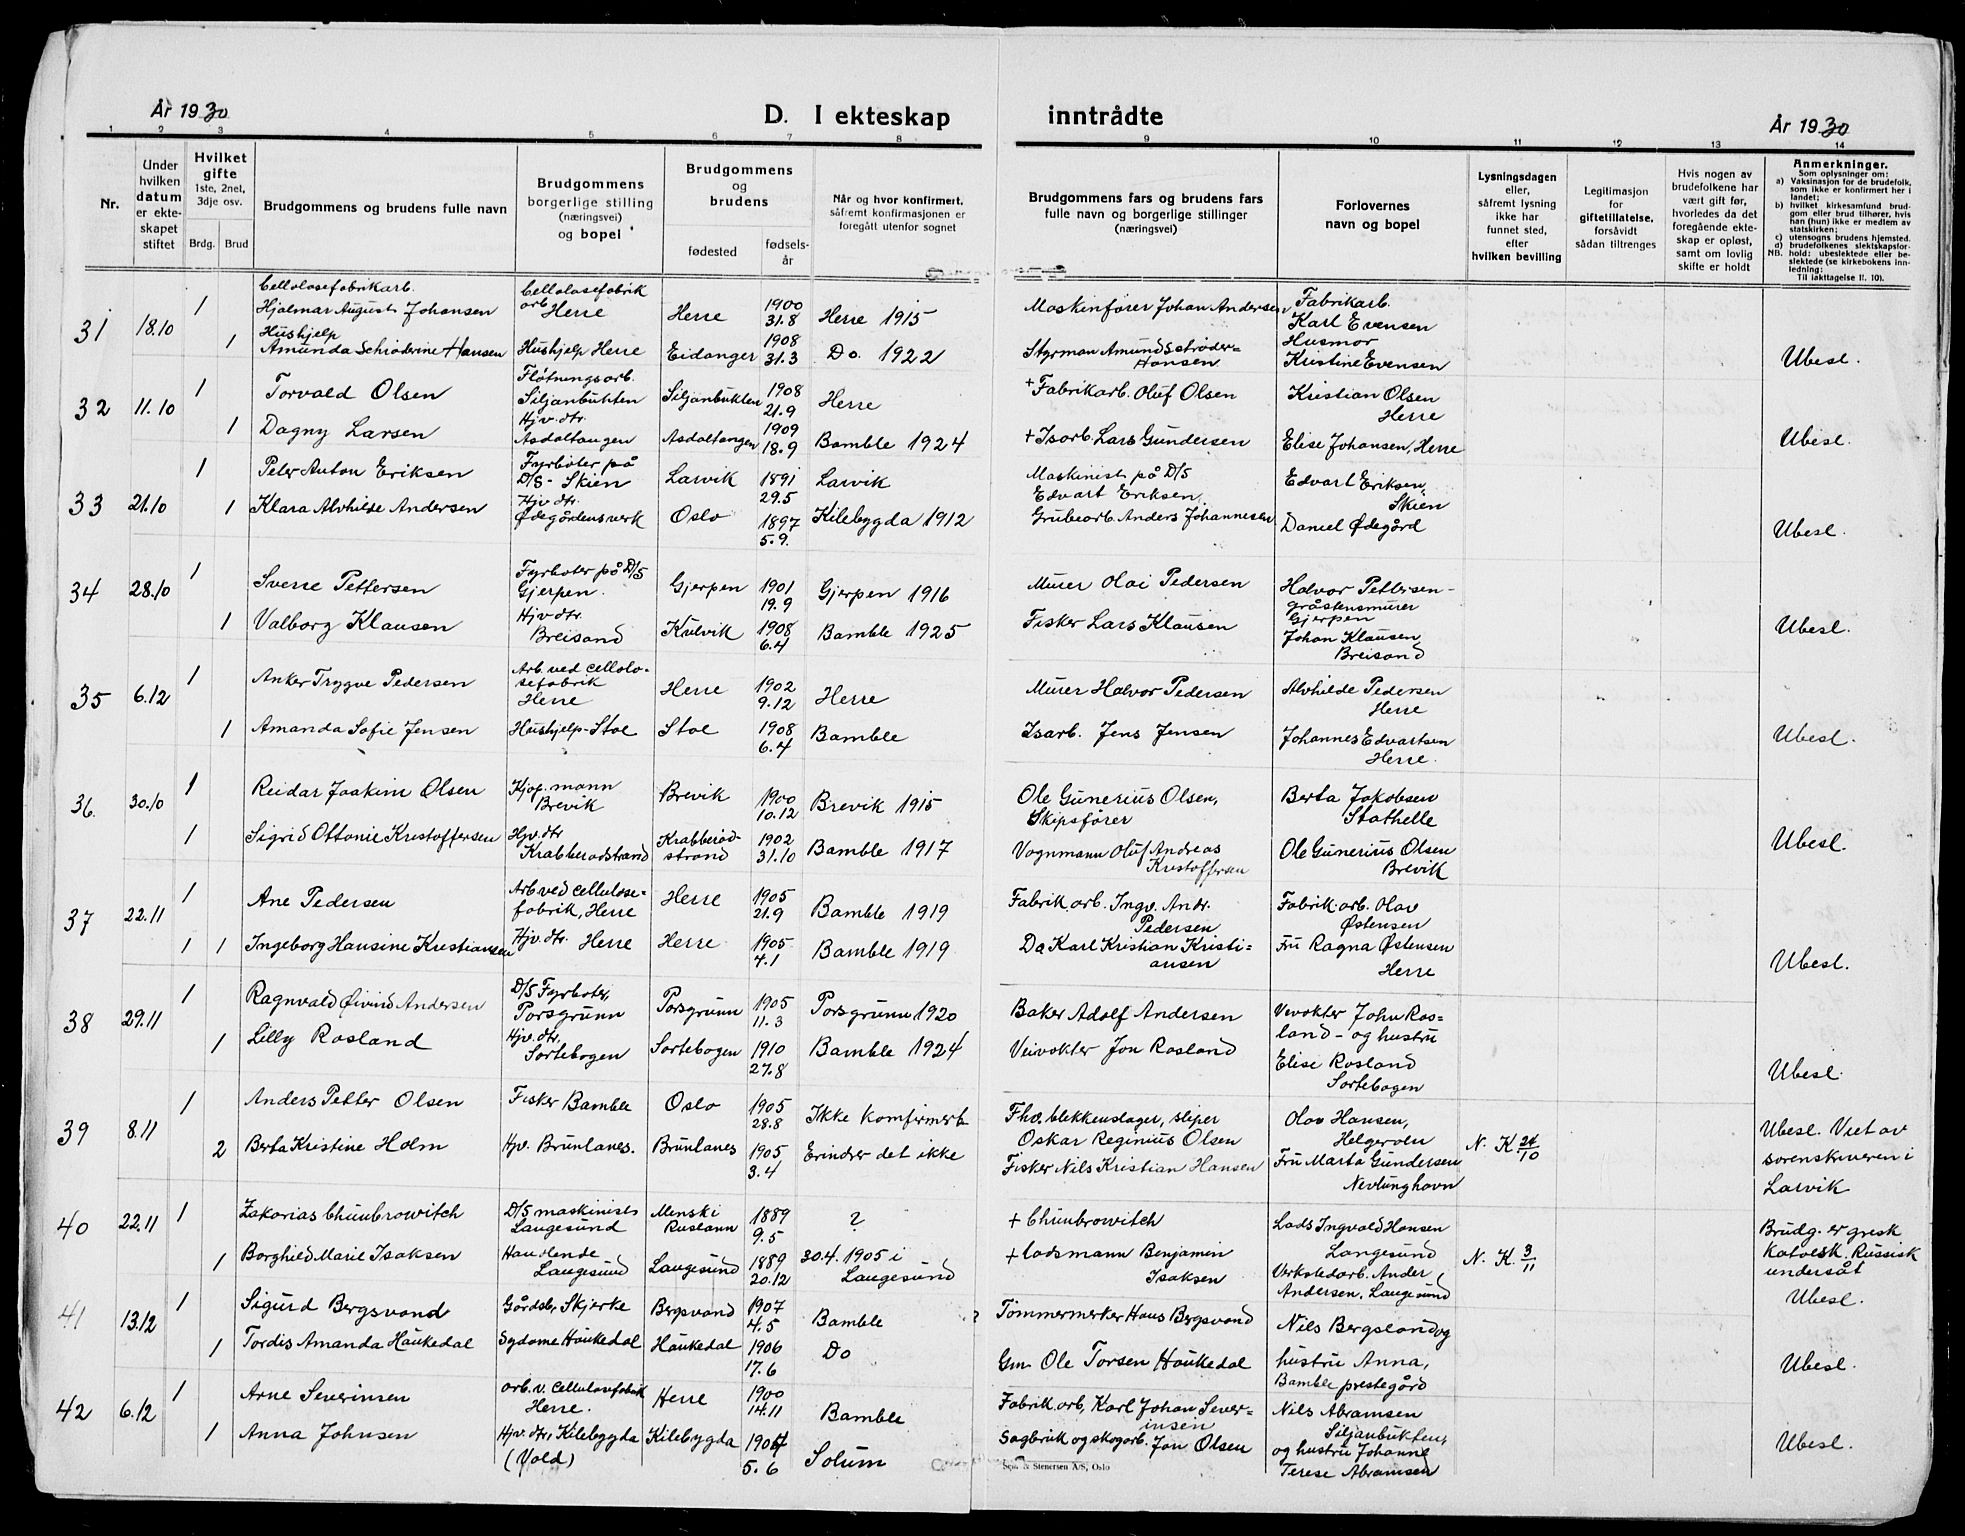 År 1930
D. I ekteskap inntrådte
År 1930
1 2 3 4 5 6 7 8 9 10 11 12 13 14
Nr.
Under hvilken datum er ekteskapet stiftet
Hvilket gifte 1ste, 2net, 3dje osv.
Brdg. Brud
Brudgommens og brudens fulle navn
Brudgommens borgerlige stilling (næringsvei) og bopel
Brudgommens og brudens
fødested
fødselsår
Når og hvor konfirmert, såfremt konfirmasjonen er foregått utenfor sognet
Brudgommens fars og brudens fars fulle navn og borgerlige stillinger (næringsvei)
Forlovernes navn og bopel
Lysningsdagen eller, såfremt lysning ikke har funnet sted, efter hvilken bevilling
Legitimasjon for giftetillatelse, forsåvidt sådan tiltrenges
Hvis nogen av brudefolkene har vært gift før, hvorledes da det foregående ekteskap er opløst, samt om lovlig skifte er holdt
Anmerkninger.
Som oplysninger om:
a) Vaksinasjon for de brudefolk, som ikke er konfirmert her i landet;
b) hvilket kirkesamfund brudgom eller brud tilhører, hvis han (hun) ikke er medlem av statskirken;
c) utensogns brudens hjemsted.
d) brudefolkenes slektskapsforhold: ubeslektede eller beslektede (se kirkebokens innledning;
NB.
Til iakttagelse ll. 10).
31 18.10 1 Cellolosefabrikarb. Hjalmar August Johansen Cellolosefabrik arb. Herre Herre 1900 31.8 Herre 1915 Maskinfører Johan Andersen Fabrikarb. Karl Evensen
1 Hushjelp Amunda Schrøderine Hansen Hushjelp Herre Eidanger 1908 31.3 Do. 1922 Styrman Amund Schrøder=Hansen Husmor Kristine Evensen Ubesl.
32 11.10 1 Torvald Olsen Fløtningsarb. Siljanbukten Siljanbukten 1908 21.9 Herre + Fabrikarb. Oluf Olsen Kristian Olsen Herre
1 Dagny Larsen Hjv. dtr. Asdaltangen Asdaltangen 1909 18.9 Bamble 1924 + Isarb. Lars Gundersen Elise Johansen, Herre Ubesl.
33 21.10 1 Peter Anton Eriksen Fyrbøter på D/S - Skien Larvik 1891 29.5 Larvik Maskinist på D/S Edvart Eriksen Edvart Eriksen, Skien
1 Klara Alvhilde Andersen Hjv. dtr. Ødegårdensverk Oslo 1897 5.9. Kilebygda 1912 Grubearb. Anders Johannesen Daniel Ødegård Ubesl.
34 28.10 1 Sverre Pettersen Fyrbøter på D/S Gjerpen. Gjerpen 1901 19.9 Gjerpen 1916 Murer Olai Pedersen Halvor Pettersen - gråstensmurer Gjerpen
1 Valborg Klausen Hjv dtr. Breisand Kulvik 1908 6.4 Bamble 1925 Fisker Lars Klausen Johan Klausen Breisand Ubesl.
35 6.12 1 Anker Trygve Pedersen Arb. ved cellolosefabrik Herre Herre 1902 9.12 Herre Murer Halvor Pedersen Alvhilde Pedersen Herre
1 Amanda Sofie Jensen Hushjelp-Stoe Stoe 1908 6.4 Bamble Isarb. Jens Jensen Johannes Edvartsen Herre. Ubesl.
36. 30.10 1 Reidar Joakim Olsen Kjøpmann Brevik Brevik 1900 10.12 Brevik 1915 Ole Gunerius Olsen, Skipsfører Berta Jakobsen Stathelle
1 Sigrid Ottonie Kristoffersen Hjv. dtr Krabberødstrand Krabberødstrand 1902 31.10 Bamble 1917 Vognmann Oluf Andreas Kristoffersen Ole Gunerius Olsen Brevik Ubesl.
37 22.11 1 Ane Pedersen Arb ved cellulosefabrik, Herre Herre 1905 21.9 Bamble 1919 Fabrik. arb. Ingv. Andr. Pedersen Fabrik. arb. Olav Østensen
1 1 Ingeborg Hansine Kristiansen Hjv. dtr. Herre Herre 1905 4.1 Bamble 1919 Do Karl Kristian Kristiansen Fru Ragna Østensen Herre Ubesl.
38 29.11 1 Ragnvald Øivind Andersen D/S Fyrbøter, Porsgrunn Porsgrunn 1905 11.3 Porsgrunn 1920 Baker Adolf Andersen Veivokter John Rosland - og hustru
1 Lilly Rosland Hjv. dtr. Sortebogen Sortebogen 1910 27.8 Bamble 1924 Veivokter Jon Rosland Elise Rosland Sortebogen Ubesl.
39 8.11 1 Anders Petter Olsen Fisker Bamble Oslo 1905 28.8 Ikke komfirmert Fhv. blekkenslager, sliper Oskar Reginius Olsen Olav Hansen, Helgeroen
2 Berta Kristine Holm Hjv. Brunlanes. Brunlanes 1905 3.4 Erindrer det ikke Fisker Nils Kristian Hansen Fru Marta Gundersen Nevlunghavn N. K 24/10 Ubesl. Viet av sorenskriveren i Larvik
40 22.11 1 Zakarias Chunbrowitch D/S maskinist Langesund Menski Rusland 1889 9.5 ? + Chunbrowitch Lods Ingvald Hansen Langesund
1 Borghild Marie Isaksen Handlende Langesund Langesund 1889 20.12 30.4.1905 i Langesund + Lodsmann Benjamin Isaksen Verkstedarb. Ander Andersen, Langesund N. K. 3/11 Brudg. er gresk katolsk. Russisk undersåt Ubesl.
41 13.12 1 Sigurd Bergsvand Gårdsbr. Skjerke Bergsvand 1907 4.5 Bamble ? Tømmermerker Hans Bergsvand Nils Bergsland og
1 Tordis Amanda Haukedal Sydame Haukedal Haukedal 1906 17.6 Do Gm. Ole Torsen Haukedal hustru Anna, Bamble prestegård Ubesl.
42 6.12 1 Arne Severinsen arb. v. Cellulosefabrik Herre. Herre 1900 14.11 Bamble Fabrik. arb. Karl Johan Severinsen Nils Abramsen Siljanbukten,
1 Anna Johnsen Hjv. dtr, Kilebygda (Vold) Kilebygda 1904 5.6 Solum Sagbruk og skogarb. Jon Olsen og hustru Johanne Terese Abramsen Ubesl.
Sem & Stenersen A/S, Oslo